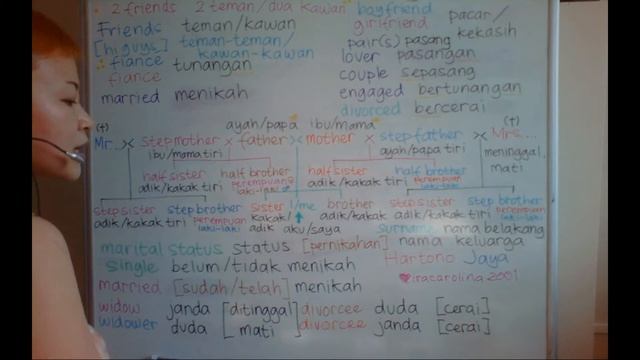 2 friends 2 teman/dua kawan
Friends teman/kawan
[hi guys] teman-teman/
kawan-kawan
fiance tunangan
fiance
married menikah
boyfriend pacar/
girlfriend kekasih
pair(s) pasang
lover pasangan
couple sepasang
engaged bertunangan
divorced bercerai
ayah/papa ibu/mama
(+) (+)
Mr... × stepmother × father × mother × stepfather × Mrs...
ibu/mama tiri ayah/papa tiri meninggal,
mati
half sister half brother half sister half brother
adik/kakak tiri perempuan laki-laki adik/kakak tiri perempuan laki-laki
step sister step brother sister I/me brother step sister step brother
adik/kakak tiri perempuan laki-laki kakak/ adik aku/saya adik/kakak adik/kakak tiri perempuan laki-laki
surname nama belakang
marital status status [pernikahan] nama keluarga
single belum/tidak menikah Hartono Jaya
married [sudah/telah] menikah iracarolina2001
widow janda [ditinggal mati] divorcee duda [cerai]
widower duda divorcee janda [cerai]